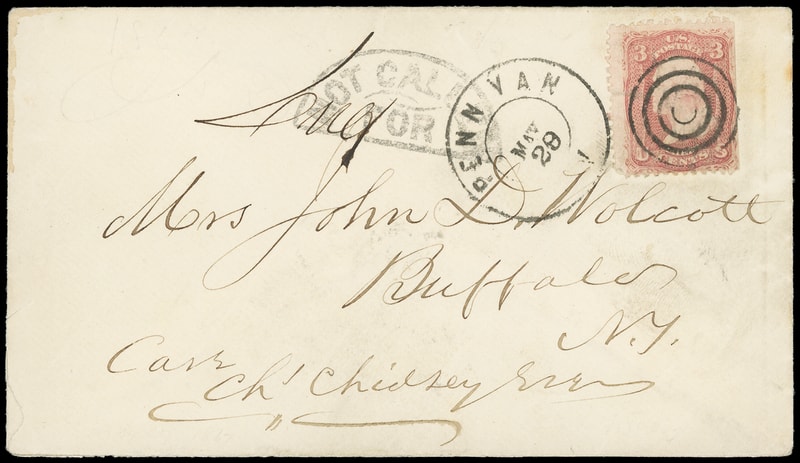 3 U.S. 3
POSTAGE
CENTS
NOT CAL
FOR
PENN YAN
MAY
28
Mrs John D. Wolcott
Buffalo
N.Y.
Care
Chs Chidsey Esq